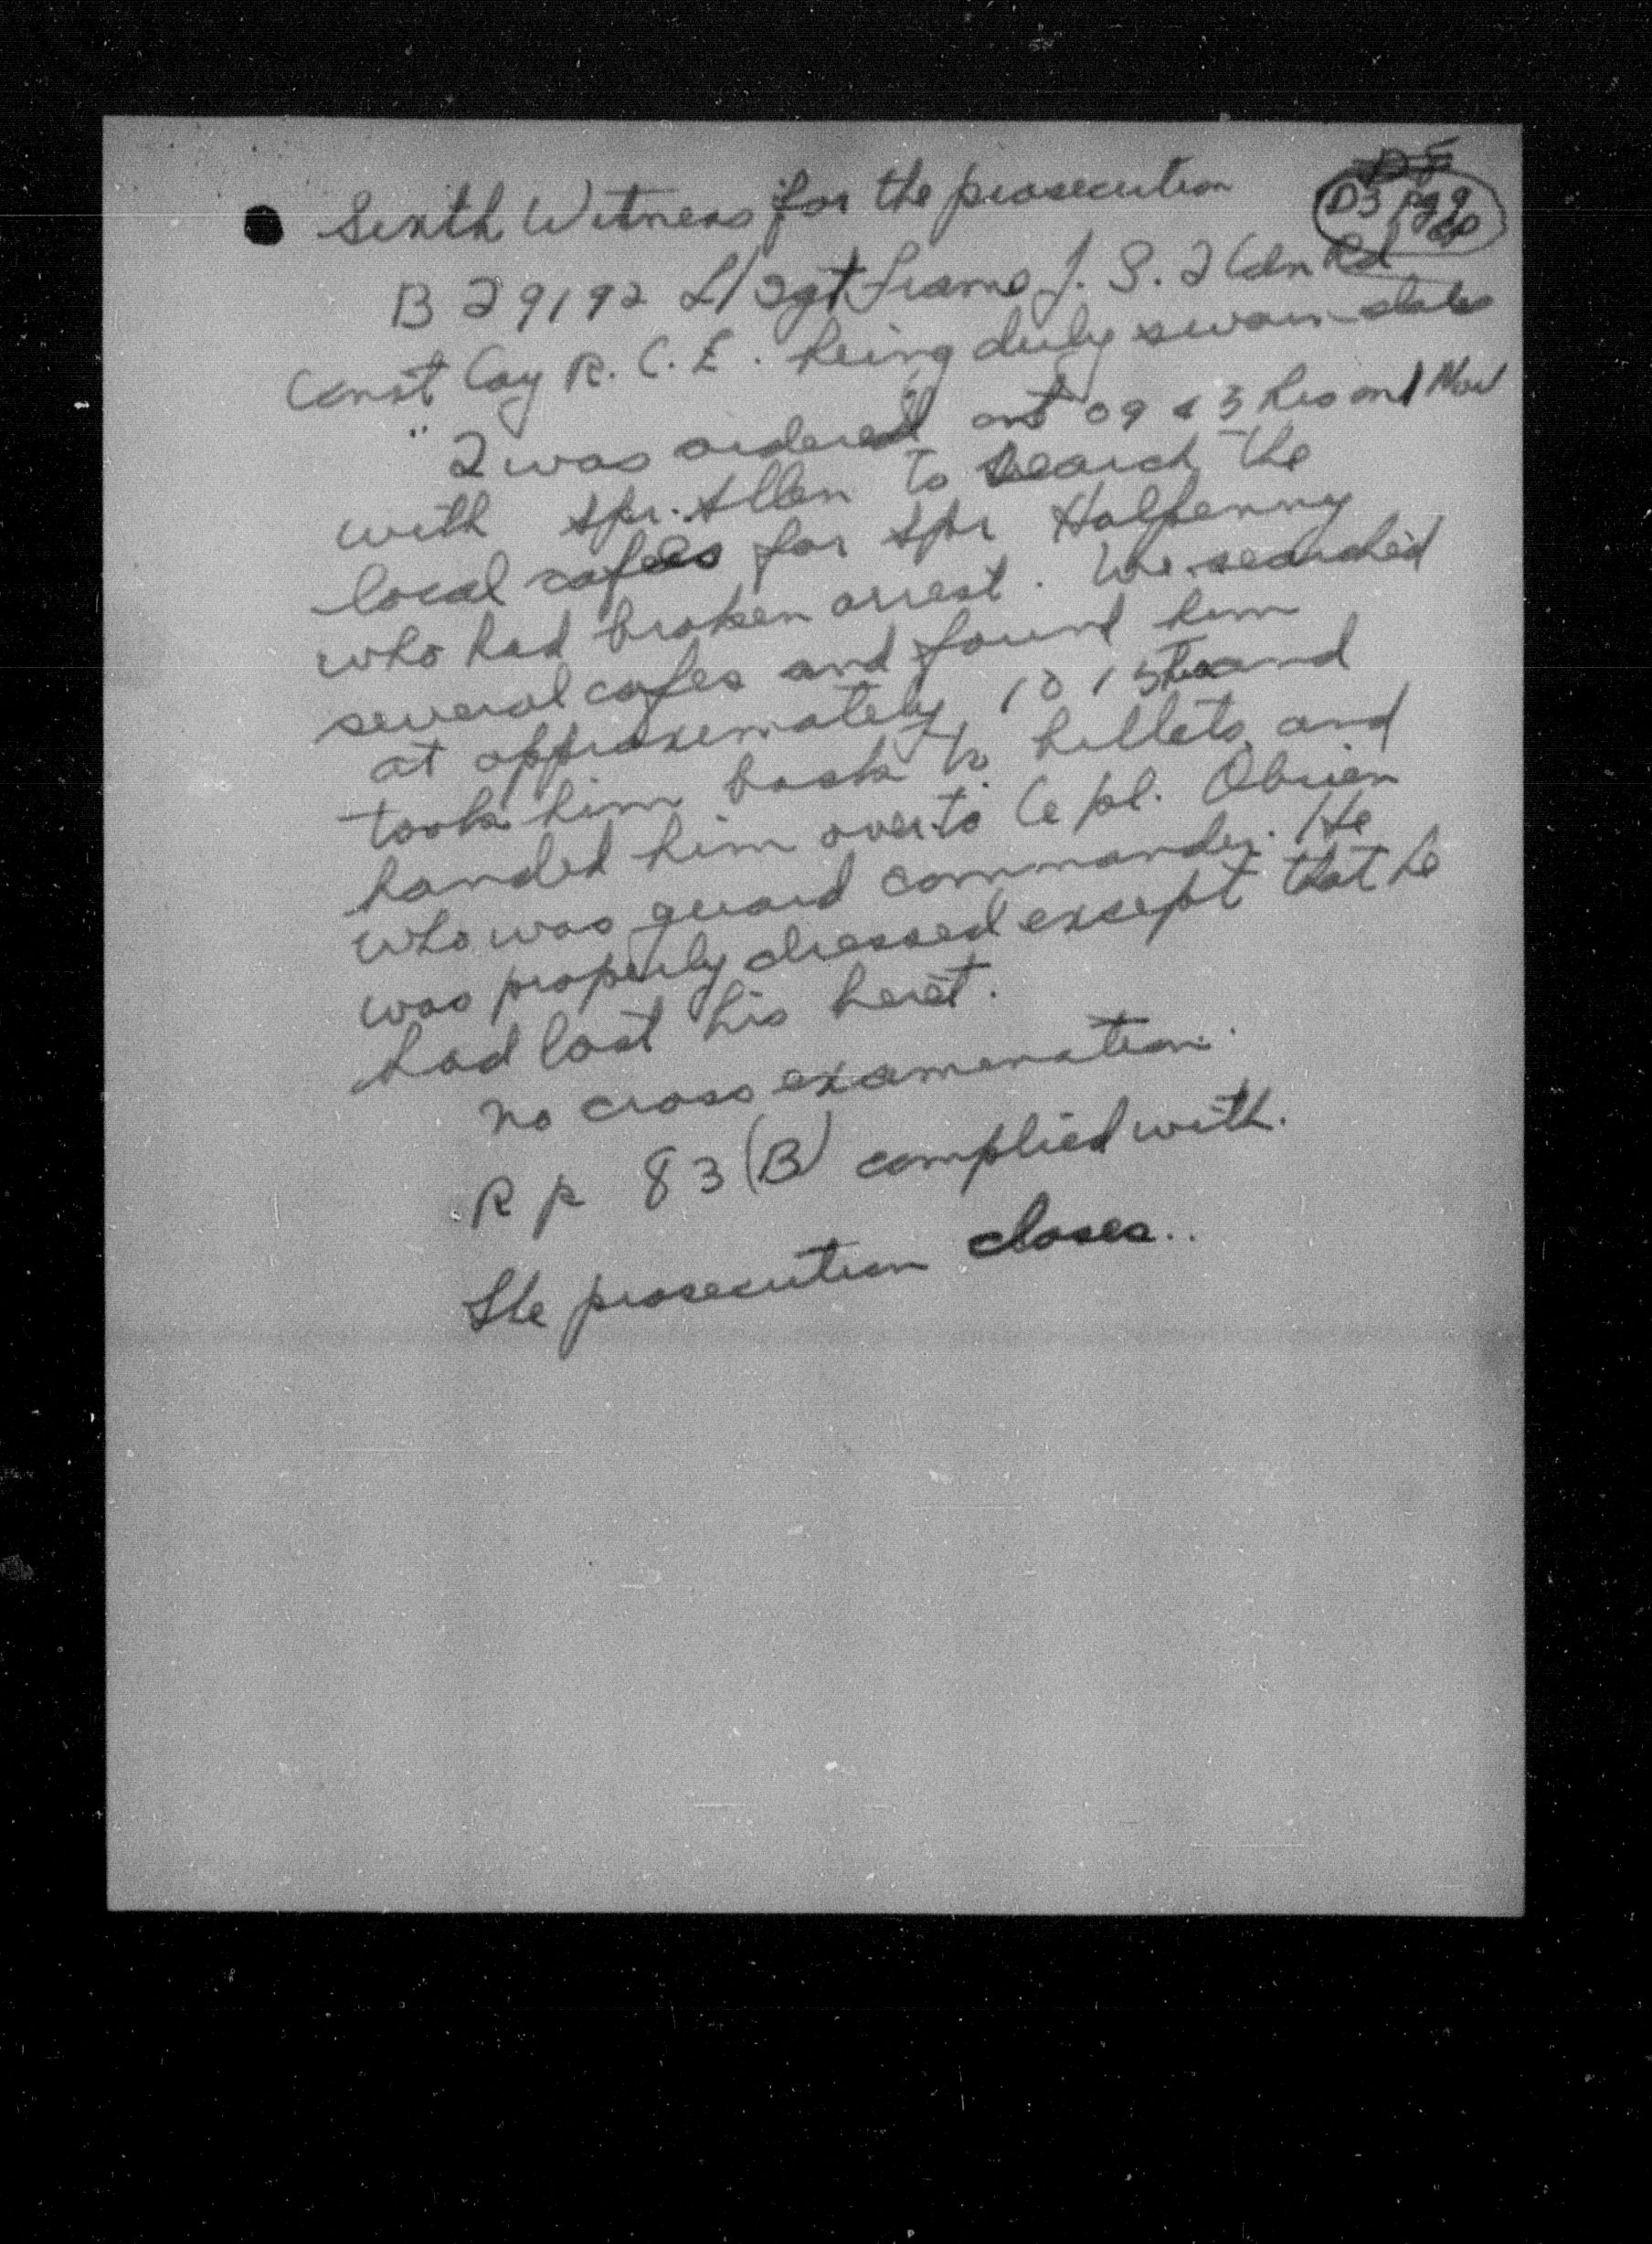 Sixth Witness for the prosecution
D3 pg 9
B 29192 L/Sgt Frame J. S. 2 Cdn Rd
Const Coy R. C. E. being duly sworn states
"I was ordered at 09 45 hrs on 1 Nov
with Spr. Allen to search the
local cafes for Spr Halpenny
who had broken arrest. We searched
several cafes and found him
at approximately 1015 hrs and
took him back to billets and
handed him over to Cpl. Obrien
who was guard commander. He
was properly dressed except that he
had lost his beret.
No cross examination.
R P 83 (B) complied with.
The prosecution closes..